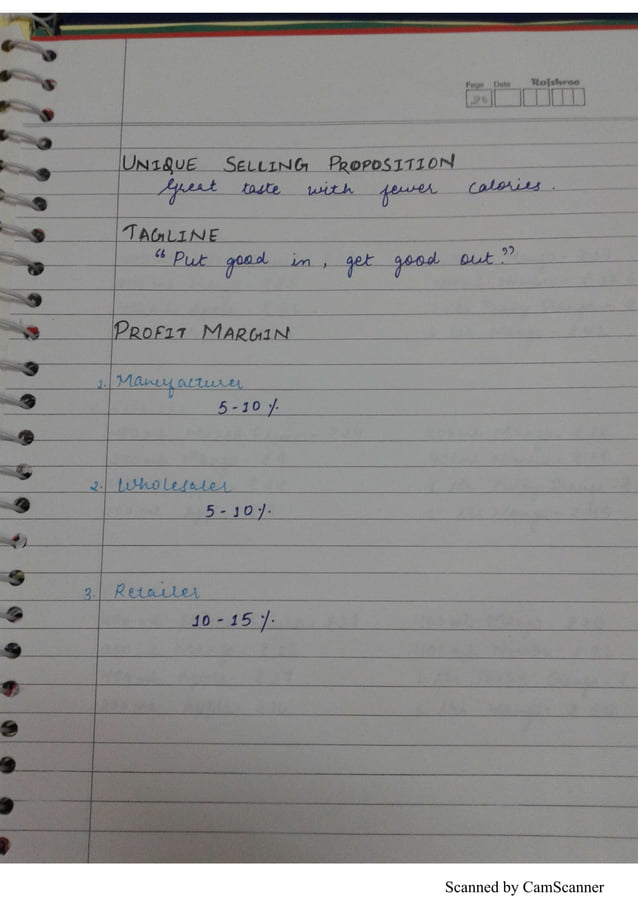 Page Date Rajshree
UNIQUE SELLING PROPOSITION
Great taste with fewer calories.
TAGLINE
"Put good in, get good out."
PROFIT MARGIN
1. Manufacturer
5-10%.
2. Wholesaler
5-10%.
3. Retailer
10-15%.
Scanned by CamScanner